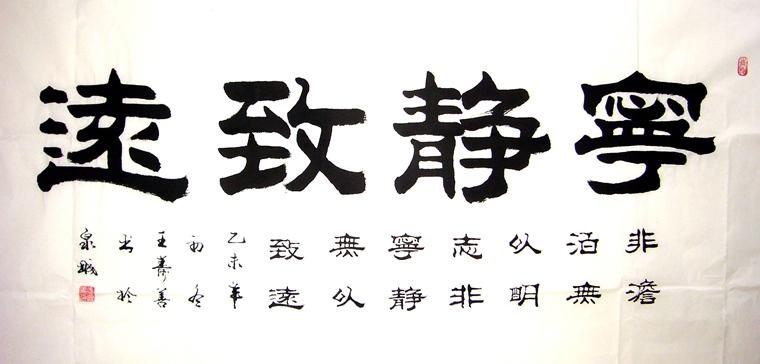 寧静致遠
非澹
泊無
以明
志非
寧静
無以
致遠
乙未年
初冬
王壽善
书於
泉城